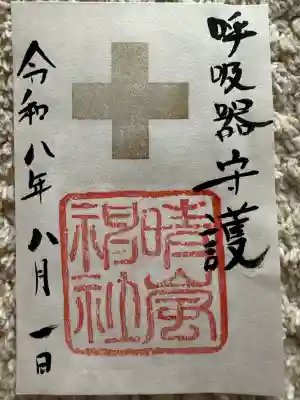 呼吸器守護
晴嵐
神社
令和八年八月一日